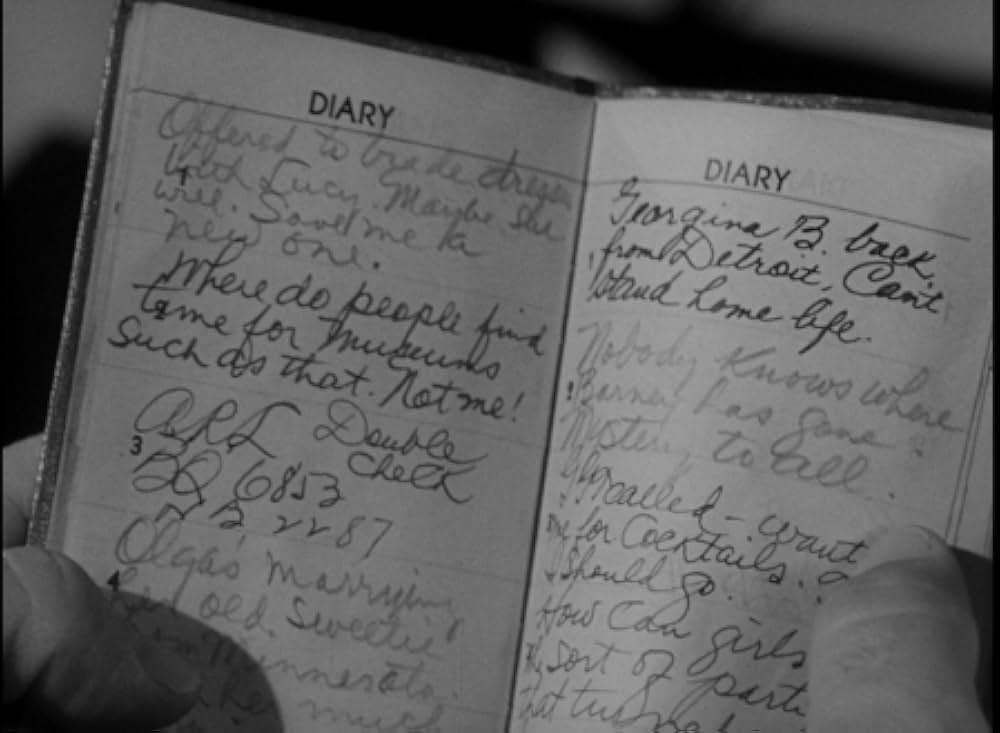 DIARY
Offered to trade dresses
with Lucy. Maybe she
will. Save me a
new one.
Where do people find
time for museums
such as that. Not me!
Double
check
3
BQ 6853
22 87
Olga's marrying
4
her old Sweetie
Minnesota.
much
DIARY
Georgina B. back
from Detroit. Can't
stand home life.
Nobody knows where
Barney has gone?
Mystery to all.
called - want
me for Cocktails. ?
I Should go.
How can girls
sort of
that